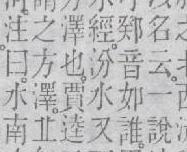 名云一說
鄈音如誰
經汾水又
澤也賈逵
之方澤北
注曰水南